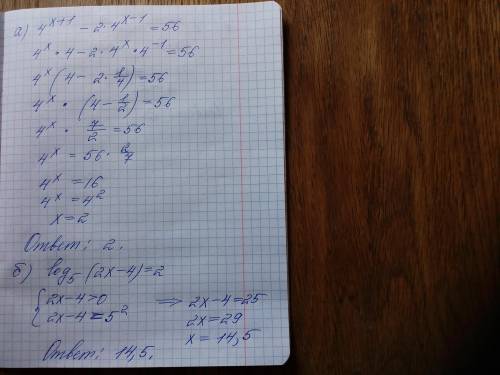 а) 4^(x+1) − 2·4^(x−1) = 56
4^x · 4 − 2 · 4^x · 4^(−1) = 56
4^x (4 − 2 · 1/4) = 56
4^x · (4 − 1/2) = 56
4^x · 7/2 = 56
4^x = 56 · 2/7
4^x = 16
4^x = 4^2
x = 2
Ответ: 2.
б) log₅ (2x−4) = 2
{ 2x−4>0
2x−4 = 5^2 ⇒ 2x−4=25
2x = 29
x = 14,5
Ответ: 14,5.